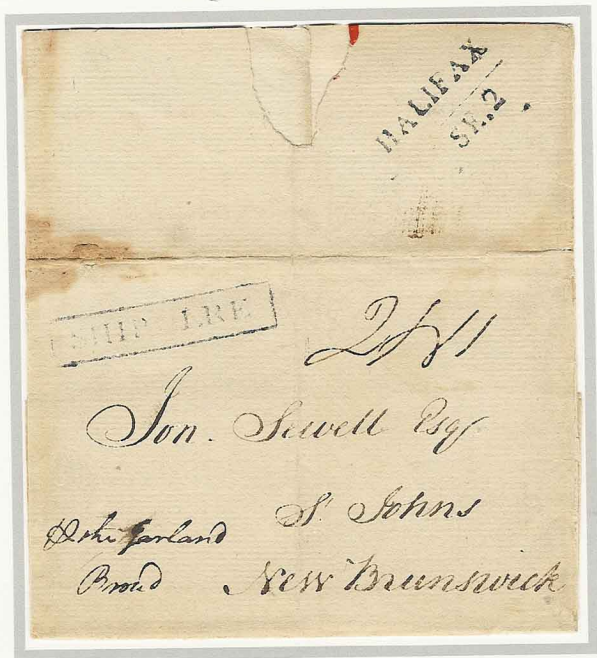 HALIFAX
SE.2
SHIP LRE
Jon. Sewell Esqr
St. Johns
New Brunswick